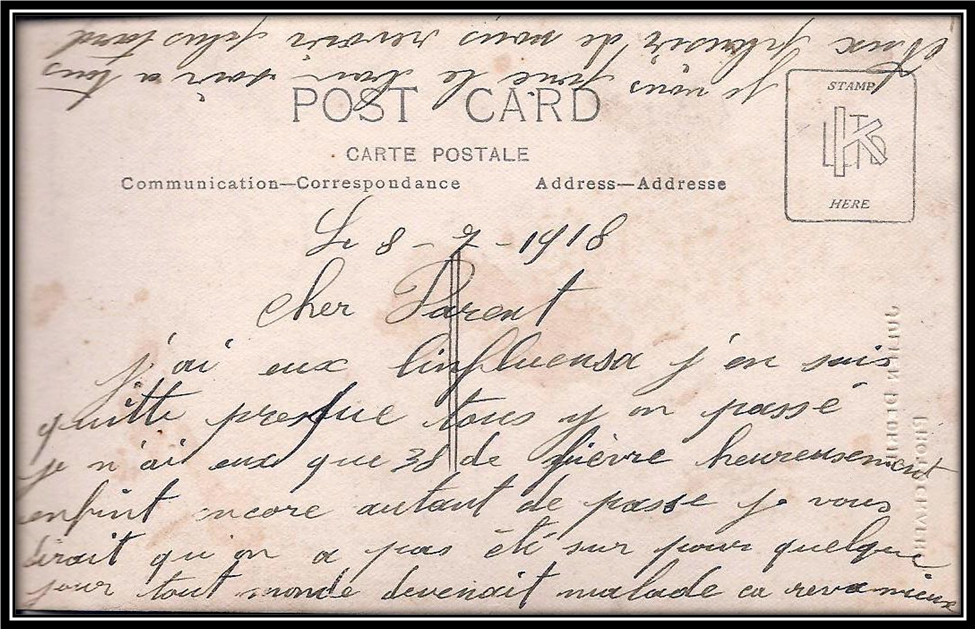 POST CARD
CARTE POSTALE
Communication—Correspondance
Address—Addresse
STAMP
HERE
Le 8 - 7 - 1918
cher Parent
j'ai eux linfluensa j'en suis
quitte presque tous y on passé
je n'ai eux que 38 de fièvre heureusement
enfint encore autant de passe je vous
dirait qu'on a pas été sur pour quelque
jour tout monde devenait malade ca reva mieux
je vous fine le bon soir a tous
Aux plaisir de vous revoir plus tard